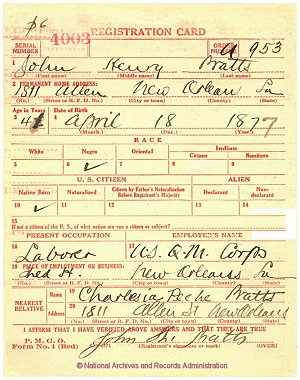 $6
REGISTRATION CARD
SERIAL NUMBER 4003 ORDER NUMBER A 953
1 John Henry Pratts
(First name) (Middle name) (Last name)
2 PERMANENT HOME ADDRESS:
1811 Allen New Orleans La
(No.) (Street or R. F. D. No.) (City or town) (County) (State)
Age in Years Date of Birth
3 41 4 April 18 1877
(Month.) (Day.) (Year.)
RACE
White Negro Oriental Indian
Citizen Noncitizen
5 6 ✓ 7 8 9
U. S. CITIZEN ALIEN
Native Born Naturalized Citizen by Father's Naturalization Before Registrant's Majority Declarant Non-declarant
10 ✓ 11 12 13 14
15
If not a citizen of the U. S., of what nation are you a citizen or subject?
PRESENT OCCUPATION EMPLOYER'S NAME
16 Laborer 17 U.S. Q.M. Corps
18 PLACE OF EMPLOYMENT OR BUSINESS:
New Orleans La
(No.) (Street or R. F. D. No.) (City or town) (County) (State)
NEAREST RELATIVE Name 19 Charlesia Peche Pratts
Address 20 1811 Allen St New Orleans
(No.) (Street or R. F. D. No.) (City or town) (County) (State)
I AFFIRM THAT I HAVE VERIFIED ABOVE ANSWERS AND THAT THEY ARE TRUE
P. M. G. O.
Form No. 1 (Red) John H. Pratts
(Registrant's signature or mark) (OVER)
© National Archives and Records Administration